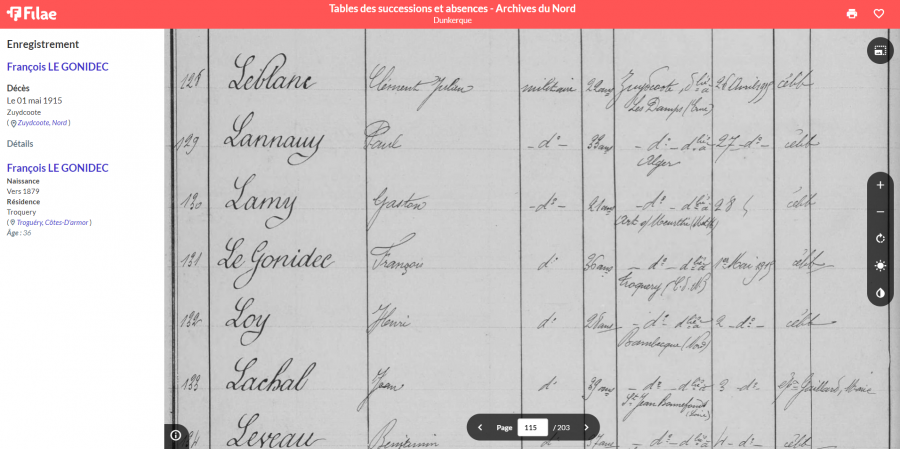 Filae
Tables des successions et absences - Archives du Nord
Dunkerque
Enregistrement
François LE GONIDEC
Décès
Le 01 mai 1915
Zuydcoote
( Zuydcoote, Nord )
Détails
François LE GONIDEC
Naissance
Vers 1879
Résidence
Troquery
( Troguéry, Côtes-D'armor )
Âge : 36
128 Leblanc Clément Julien militaire 22 ans Zuydcoote, d'lié à 28 Avril 1915 célib
Les Damps (Eure)
129 Lannauy Paul - d° - 33 ans - d° - d'lié à 27 - d° - célib
Alger
130 Lamy Gaston - d° - 21 ans - d° - d'lié à 28 célib
131 Le Gonidec François d° 36 ans - d° - d'lié à 1er Mai 1915 célib
Troquery (C. d. N)
132 Loy Henri d° 28 ans - d° - d'lié à 2 - d° - célib
Bambecque (Nord)
133 Lachal Jean d° 39 ans - d° - d'lié à 3 - d° - ép = Gaillard, Marie
St Jean Bonnefonds (Loire)
34 Leveau Benjamin d° 37 ans - d° - d'lié à 4 - d° - célib
Page 115 / 203